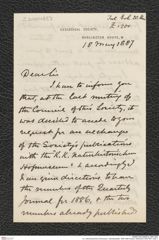 GEOLOGICAL SOCIETY,
BURLINGTON HOUSE, W.
18 May 1887
Dear Sir
I have to inform you
that, at the last meeting of
the Council of this Society, it
was decided to accede to your
request for an exchange
of the Society's publications
with the K.K. Naturhistorischen
Hofmuseum & accordingly
I am giving directions to have
the numbers of the Quarterly
Journal for 1886, & the two
numbers already published